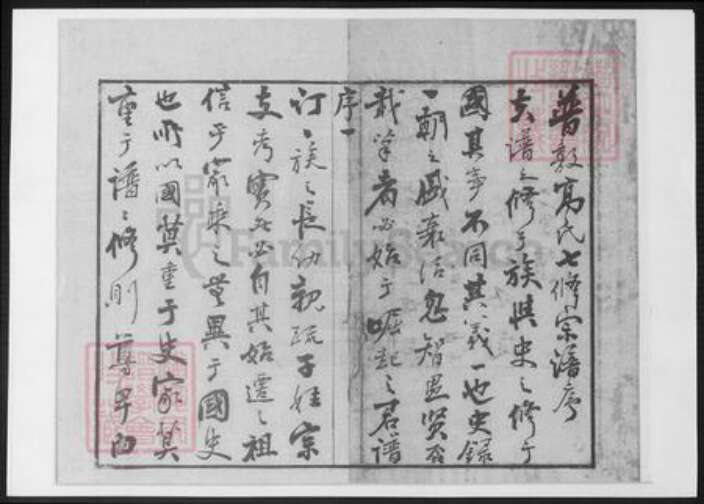 普敦高氏七修宗譜序
夫譜之修于族與史之修于
國其事不同其義一也史録
一朝之盛衰活忽智愚賢否
載筆者必始于崛起之君譜
序一
訂一族之長幼親疏子姓宗
支考實者必自其始遷之祖
信乎家乘之無異于國史
也所以國莫重于史家莫
重于譜譜修則尊卑
FamilySearch